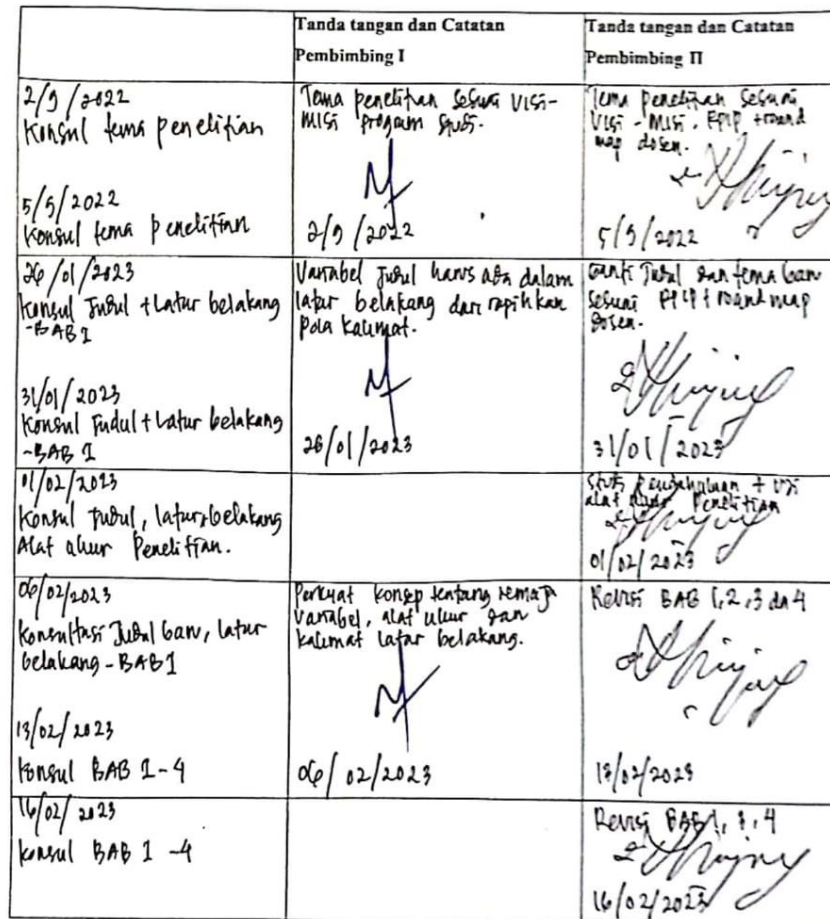 Tanda tangan dan Catatan
Pembimbing I
Tanda tangan dan Catatan
Pembimbing II
2/9/2022
Konsul tema penelitian
5/9/2022
Konsul tema penelitian
Tema penelitian sesuai visi-
misi program studi.
2/9/2022
Tema penelitian sesuai
visi-misi, PPIP + roand
map dosen.
5/9/2022
26/01/2023
Konsul Judul + Latar belakang
-BAB I
31/01/2023
Konsul Judul + Latar belakang
-BAB I
Variabel judul harus ada dalam
latar belakang dan rapihkan
pola kalimat.
26/01/2023
Ganti judul dan tema baru
sesuai PPIP + roand map
dosen.
31/01/2023
01/02/2023
Konsul Judul, latar belakang
Alat ukur Penelitian.
Studi Pendahuluan + uji
alat ukur Penelitian
01/02/2023
06/02/2023
Konsultasi Judul baru, latar
belakang - BAB I
13/02/2023
Konsul BAB 1-4
Perkuat konsep tentang remaja
variabel, alat ukur dan
kalimat latar belakang.
06/02/2023
Revisi BAB 1,2,3 dan 4
13/02/2023
16/02/2023
konsul BAB 1-4
Revisi BAB 1, 3, 4
16/02/2023